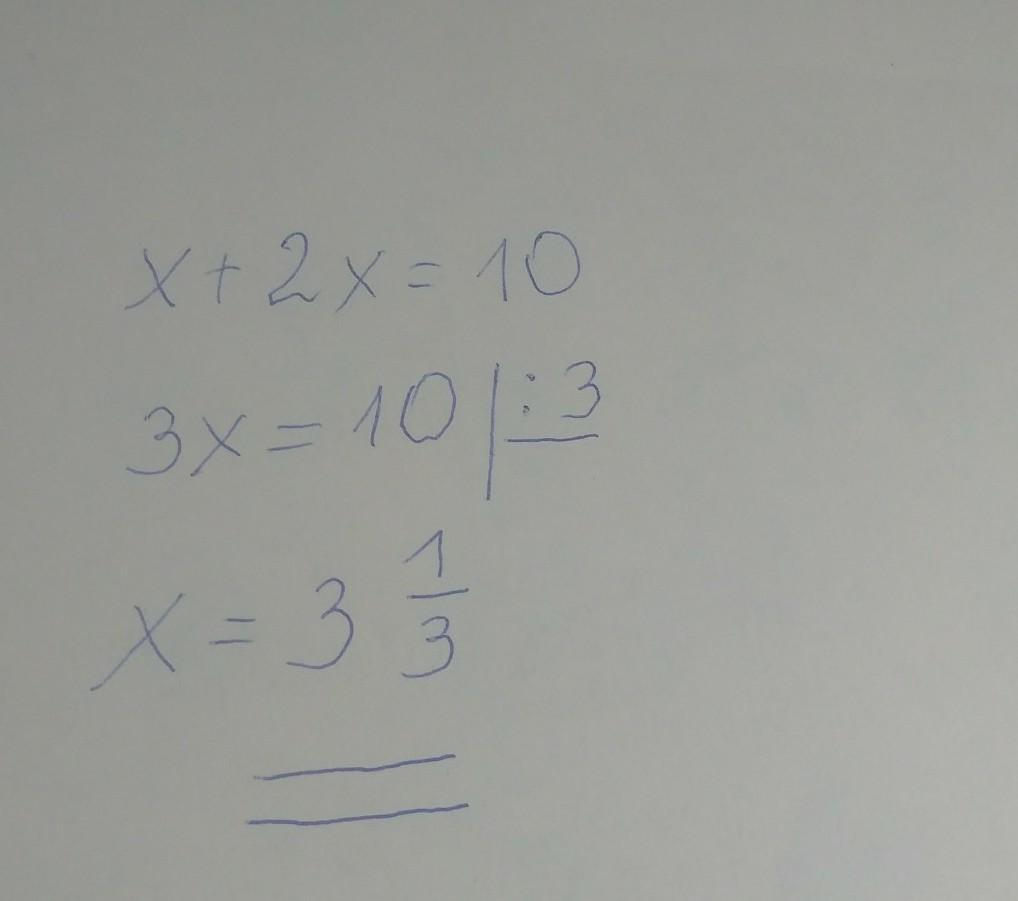 x + 2x = 10
3x = 10 | : 3
x = 3 1/3